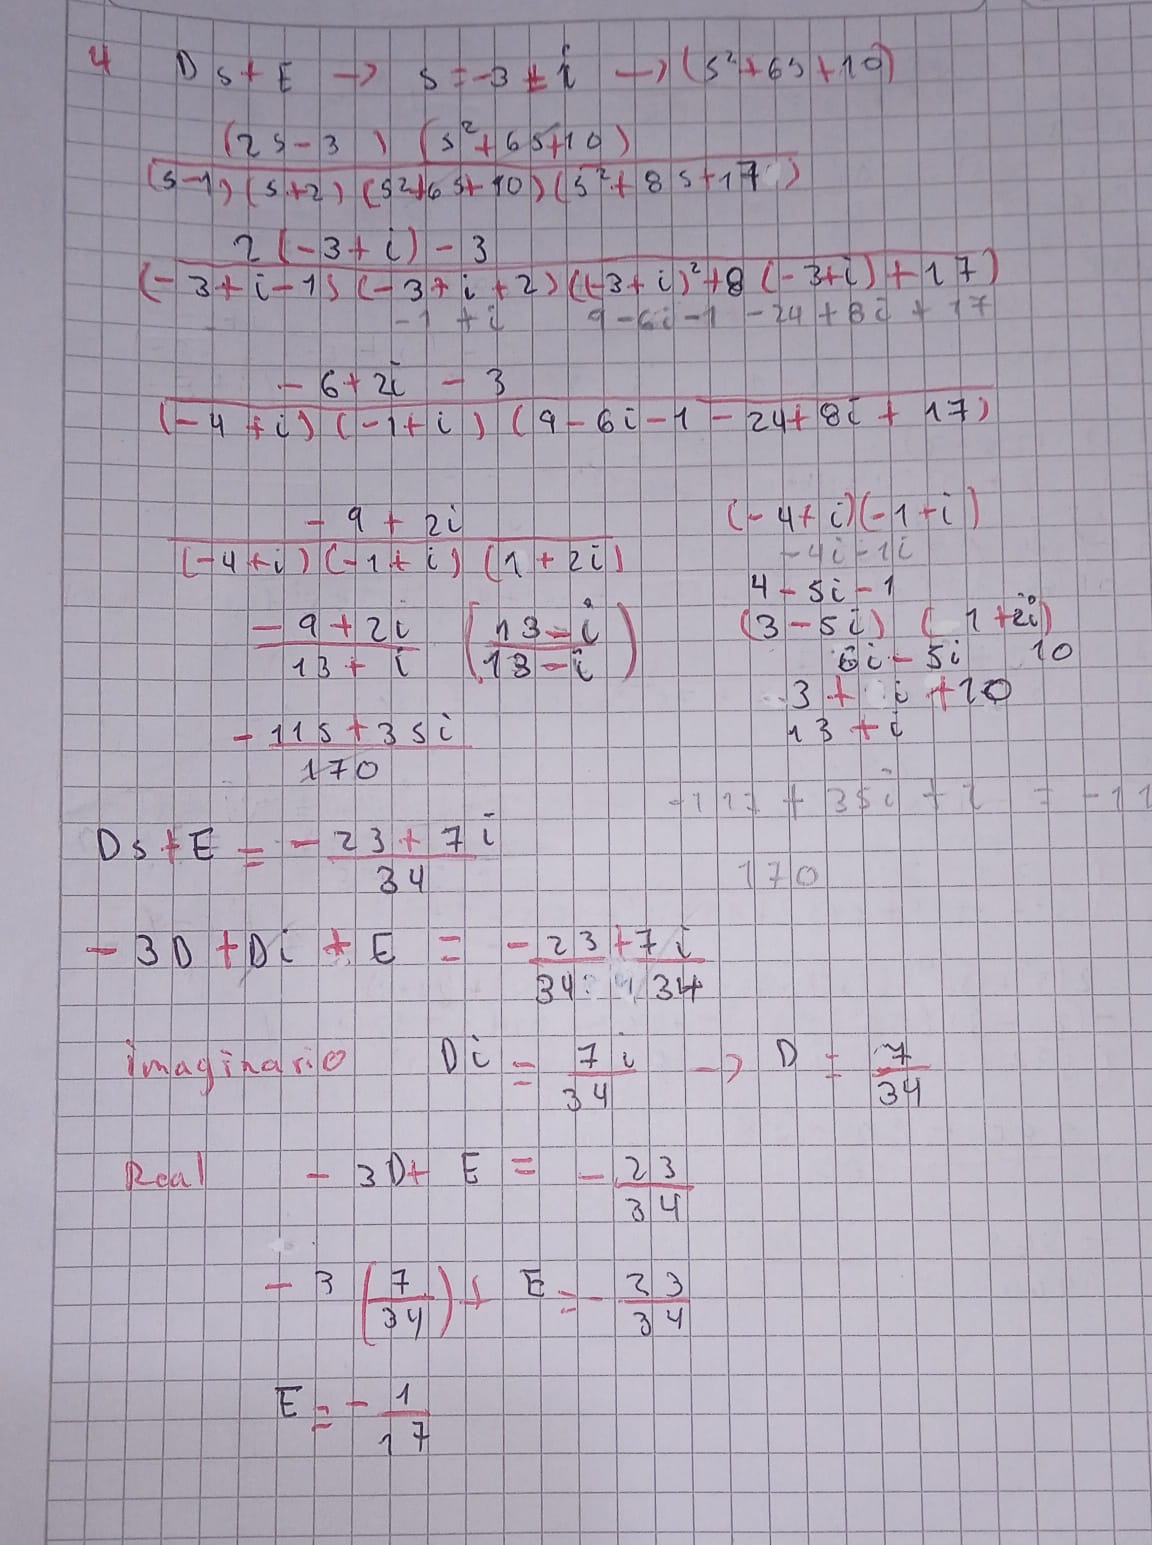 4 Ds + E → s = -3 ± i → (s²+6s+10)
(2s-3) (s²+6s+10)
(s-1) (s+2) (s²+6s+10) (s²+8s+17)
2(-3+i) - 3
(-3+i-1) (-3+i+2) ((-3+i)²+8(-3+i)+17)
-1 + i 9-6i-1 -24+8i+17
-6+2i - 3
(-4+i) (-1+i) (9-6i-1-24+8i+17)
-9+2i
(-4+i) (-1+i) (1+2i)
(-4+i)(-1+i)
-4i-1i
4-5i-1
(3-5i) (1+2i)
6i-5i 10
3 + i +10
13 + i
-9+2i (13-i)
13+i (13-i)
-115+35i
170
-117 + 35i + 2 = -11
170
Ds+E = -23+7i
34
-3D + Di + E = -23 + 7i
34 34
imaginario Di = 7i → D = 7
34 34
Real -3D + E = -23
34
-3 (7) + E = -23
(34) 34
E = -1
17